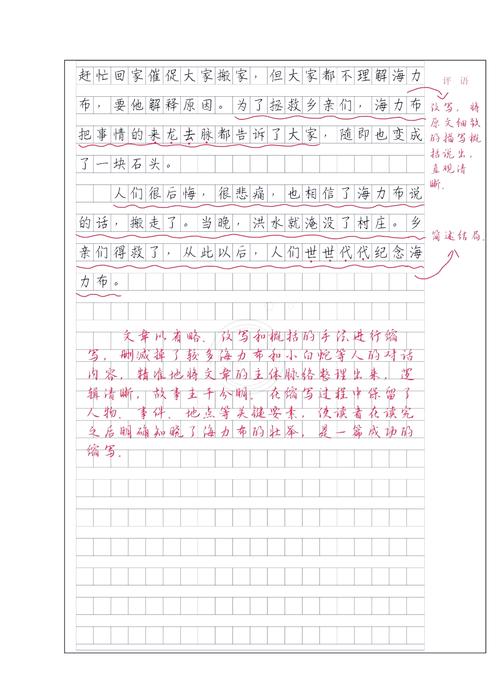 赶忙回家催促大家搬家，但大家都不理解海力
布，要他解释原因。为了拯救乡亲们，海力布
把事情的来龙去脉都告诉了大家，随即也变成
了一块石头。
人们很后悔，很悲痛，也相信了海力布说
的话，搬走了。当晚，洪水就淹没了村庄。乡
亲们得救了，从此以后，人们世世代代纪念海
力布。
评 语
改写，将
原文细致
的描写概
括说出，
直观清
晰。
简述结局。
文章以省略、改写和概括的手法进行缩
写，删减掉了较多海力布和小白蛇等人的对话
内容，精准地将文章的主体脉络整理出来，逻
辑清晰，故事主干分明。在缩写过程中保留了
人物、事件、地点等关键要素，使读者在读完
之后明确知晓了海力布的壮举，是一篇成功的
缩写。